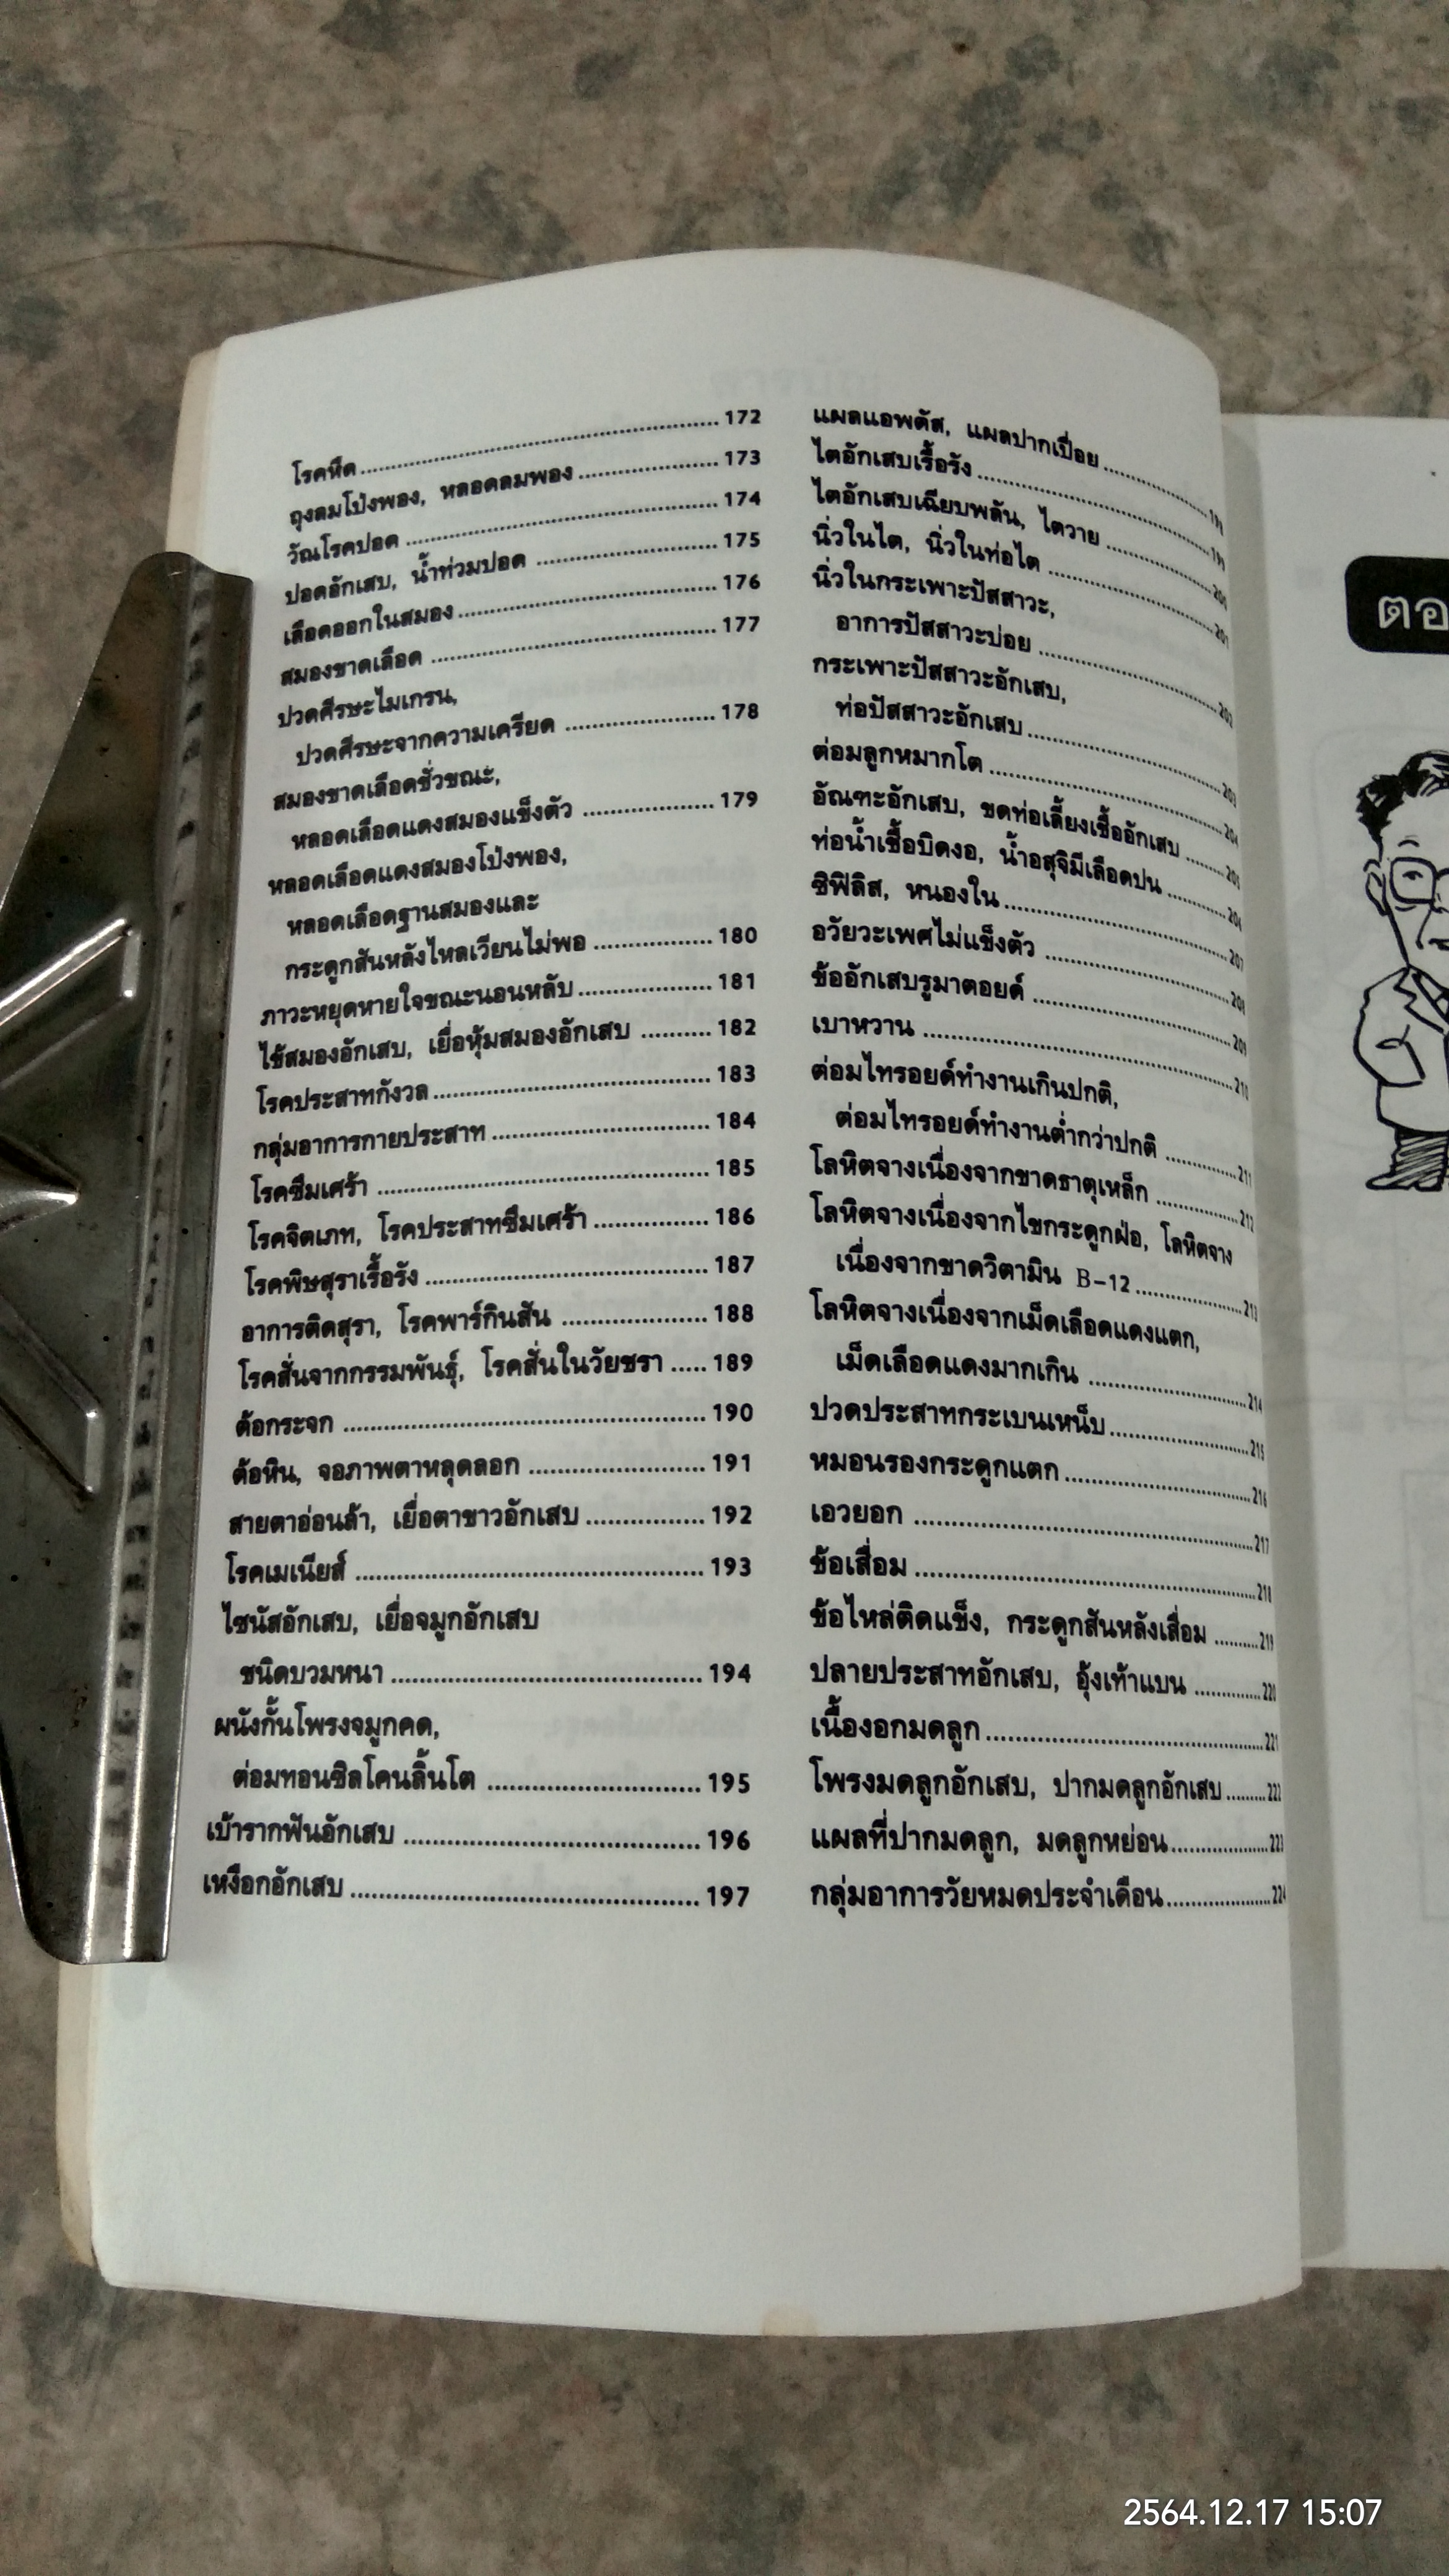 โรคหืด 172
ถุงลมโป่งพอง, หลอดลมพอง 173
วัณโรคปอด 174
ปอดอักเสบ, น้ำท่วมปอด 175
เลือดออกในสมอง 176
สมองขาดเลือด 177
ปวดศีรษะไมเกรน,
ปวดศีรษะจากความเครียด 178
สมองขาดเลือดชั่วขณะ,
หลอดเลือดแดงสมองแข็งตัว 179
หลอดเลือดแดงสมองโป่งพอง,
หลอดเลือดฐานสมองและ
กระดูกสันหลังไหลเวียนไม่พอ 180
ภาวะหยุดหายใจขณะนอนหลับ 181
ไข้สมองอักเสบ, เยื่อหุ้มสมองอักเสบ 182
โรคประสาทกังวล 183
กลุ่มอาการกายประสาท 184
โรคซึมเศร้า 185
โรคจิตเภท, โรคประสาทซึมเศร้า 186
โรคพิษสุราเรื้อรัง 187
อาการติดสุรา, โรคพาร์กินสัน 188
โรคสั่นจากกรรมพันธุ์, โรคสั่นในวัยชรา 189
ต้อกระจก 190
ต้อหิน, จอภาพตาหลุดลอก 191
สายตาอ่อนล้า, เยื่อตาขาวอักเสบ 192
โรคเมเนียส์ 193
ไซนัสอักเสบ, เยื่อจมูกอักเสบ
ชนิดบวมหนา 194
ผนังกั้นโพรงจมูกคด,
ต่อมทอนซิลโคนลิ้นโต 195
เบ้ารากฟันอักเสบ 196
เหงือกอักเสบ 197
แผลแอพตัส, แผลปากเปื่อย 198
ไตอักเสบเรื้อรัง 199
ไตอักเสบเฉียบพลัน, ไตวาย 200
นิ่วในไต, นิ่วในท่อไต 201
นิ่วในกระเพาะปัสสาวะ,
อาการปัสสาวะบ่อย 202
กระเพาะปัสสาวะอักเสบ,
ท่อปัสสาวะอักเสบ 203
ต่อมลูกหมากโต 204
อัณฑะอักเสบ, ขดท่อเลี้ยงเชื้ออักเสบ 205
ท่อน้ำเชื้อบิดงอ, น้ำอสุจิมีเลือดปน 206
ซิฟิลิส, หนองใน 207
อวัยวะเพศไม่แข็งตัว 208
ข้ออักเสบรูมาตอยด์ 209
เบาหวาน 210
ต่อมไทรอยด์ทำงานเกินปกติ,
ต่อมไทรอยด์ทำงานต่ำกว่าปกติ 211
โลหิตจางเนื่องจากขาดธาตุเหล็ก 212
โลหิตจางเนื่องจากไขกระดูกฝ่อ, โลหิตจาง
เนื่องจากขาดวิตามิน B-12 213
โลหิตจางเนื่องจากเม็ดเลือดแดงแตก,
เม็ดเลือดแดงมากเกิน 214
ปวดประสาทกระเบนเหน็บ 215
หมอนรองกระดูกแตก 216
เอวยอก 217
ข้อเสื่อม 218
ข้อไหล่ติดแข็ง, กระดูกสันหลังเสื่อม 219
ปลายประสาทอักเสบ, อุ้งเท้าแบน 220
เนื้องอกมดลูก 221
โพรงมดลูกอักเสบ, ปากมดลูกอักเสบ 222
แผลที่ปากมดลูก, มดลูกหย่อน 223
กลุ่มอาการวัยหมดประจำเดือน 224
ตอ
2564.12.17 15:07